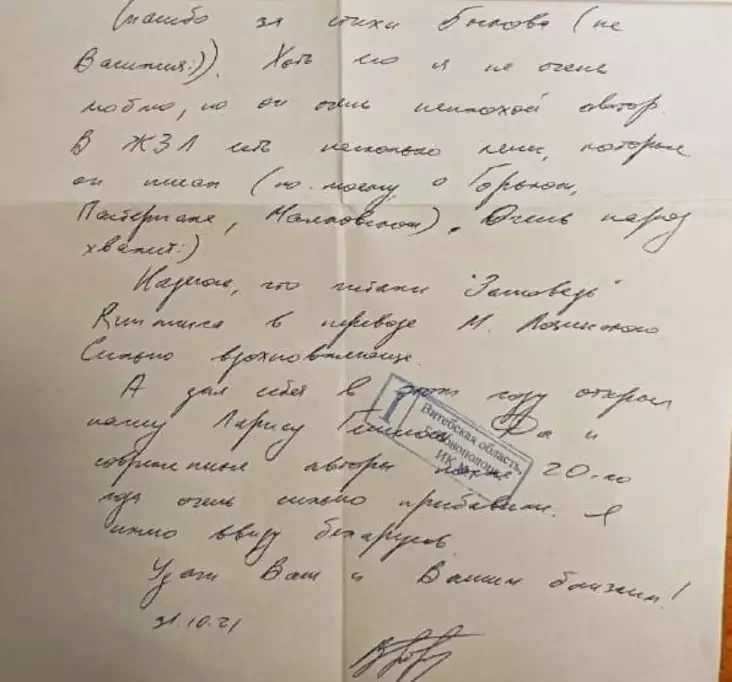 Спасибо за стихи Быкова (не
Василия:)). Хоть его я не очень
люблю, но он очень неплохой автор.
В ЖЗЛ есть несколько книг, которые
он писал (по-моему, о Горьком,
Пастернаке, Маяковском). Очень народ
хвалит:)
Надеюсь, что читали "Заповедь"
Киплинга в переводе М. Лозинского
Сильно вдохновляюще.
А для себя в этом году открыл
нашу Ларису Да и
современные авторы 20-го
года очень сильно прибавили. Я
имею ввиду беларусов.
Удачи Вам и Вашим близким!
31.10.21
Витебская область,
г. Новополоцк
ИК №1